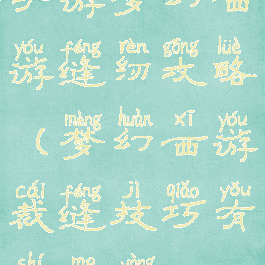 yóu féng rèn gōng lüè
游缝纫攻略
mèng huàn xī yóu
（梦幻西游
cái féng jì qiǎo yǒu
裁缝技巧有
shí me yòng